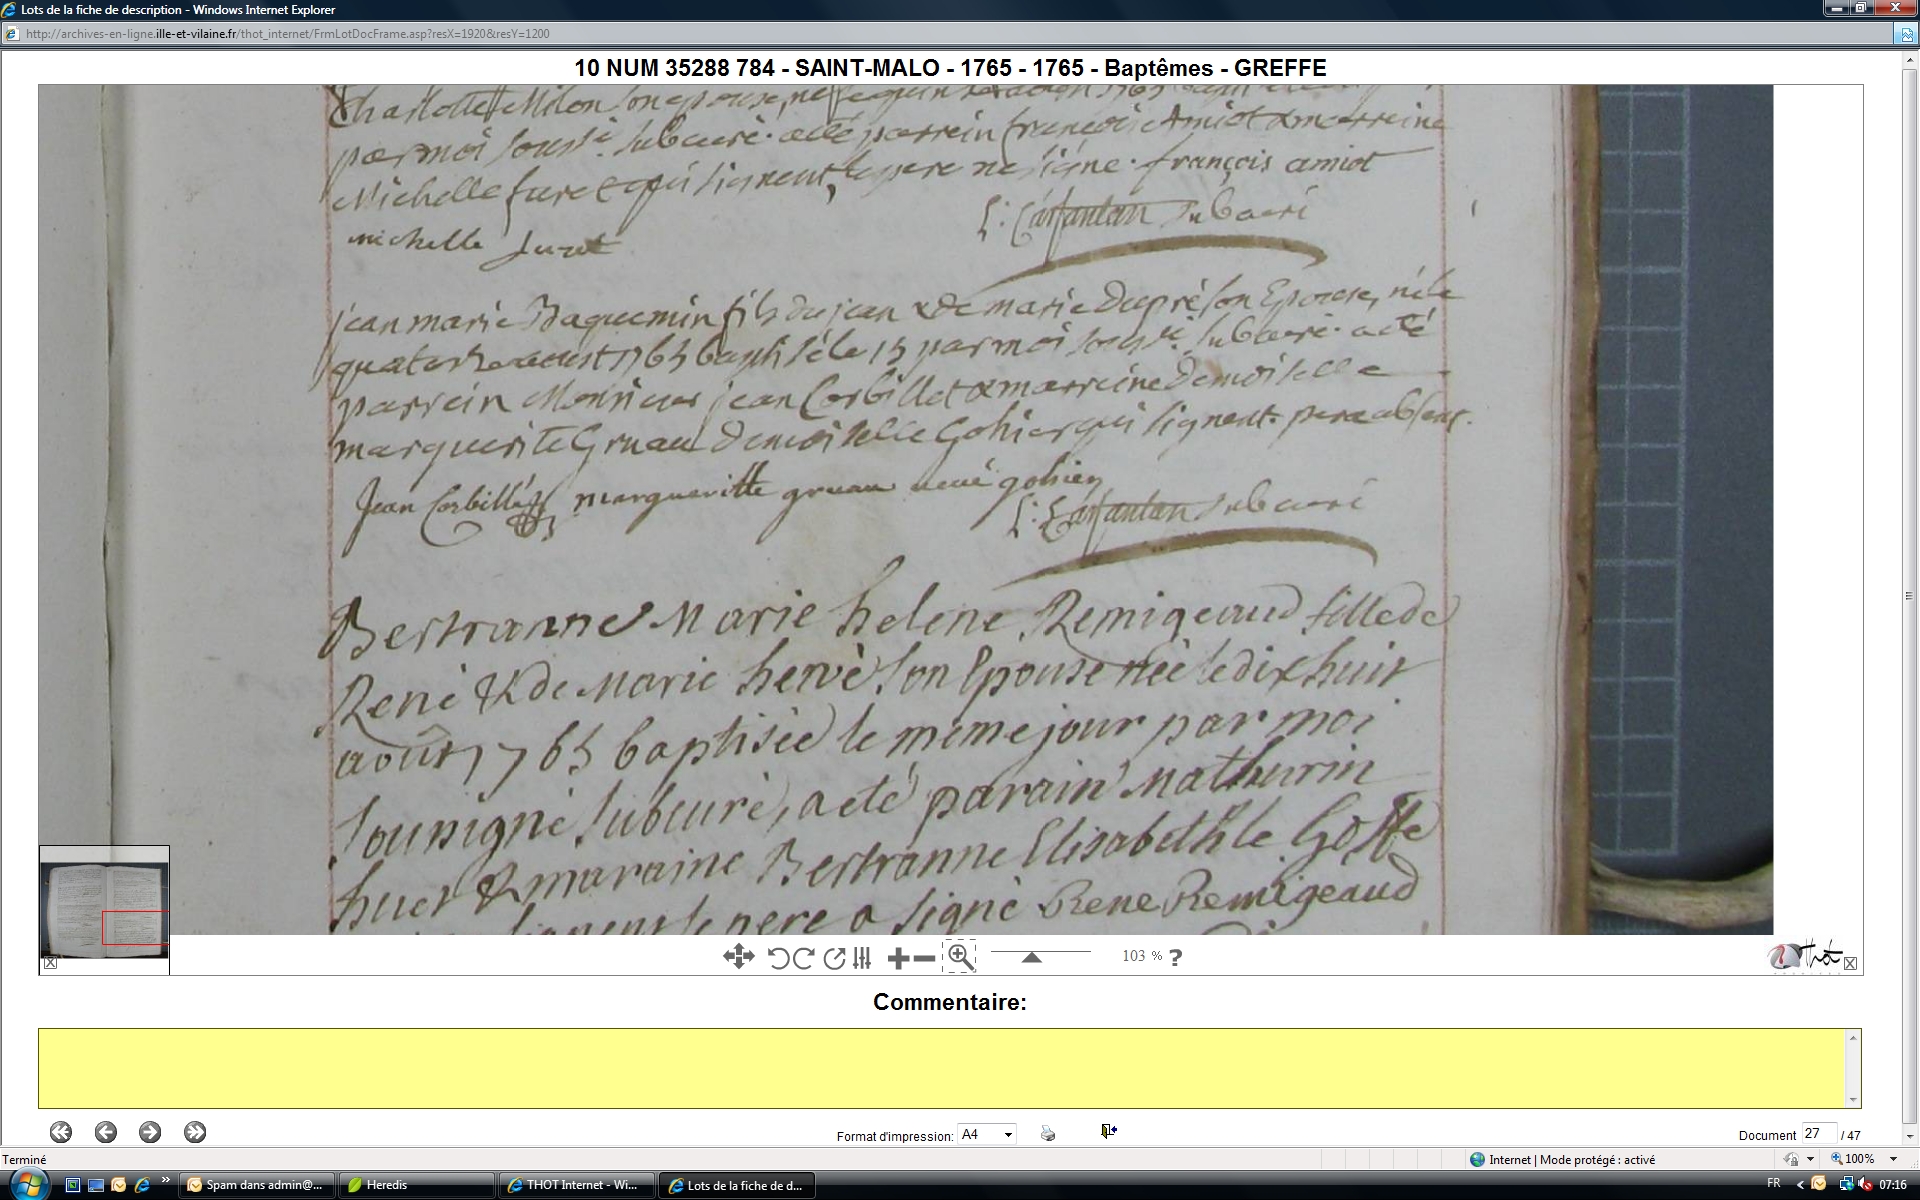 Lots de la fiche de description - Windows Internet Explorer
http://archives-en-ligne.ille-et-vilaine.fr/thot_internet/FrmLotDocFrame.asp?resX=1920&resY=1200
10 NUM 35288 784 - SAINT-MALO - 1765 - 1765 - Baptêmes - GREFFE
Charlotte Milon son epouse, 1765
par moi soussé. subcuré. acté parrein françois Amiot & marreine
Michelle furet qui signent, le pere ne signe. françois amiot
L: Carfantan subcuré
michelle furet
jean marie Baquemin fils du jean & de marie dupré son Epouse, né le
quatorze aoust 1765 baptisé le 15 par moi soussé. subcuré. acté
parrein Monsieur jean Corbillet & marreine demoiselle
marguerite Gruau demoiselle Gohier qui signent. pere absent.
Jean Corbillé margueritte gruau veuë gohier
L: Carfantan subcuré
Bertranne Marie helene Remigeaud fille de
René & de Marie hervé son Epouse née le dix huit
août 1765 baptisée le meme jour par moi
sousigné subcuré, acté parain Mathurin
huet & maraine Bertranne Elisabeth le Gosse
signent le pere a signé Rene Remigeaud
103 % ?
Thot
Commentaire:
Format d'impression: A4
Document 27 / 47
Terminé
Internet | Mode protégé : activé
100%
Spam dans admin@...
Heredis
THOT Internet - Wi...
Lots de la fiche de d...
FR
07:16